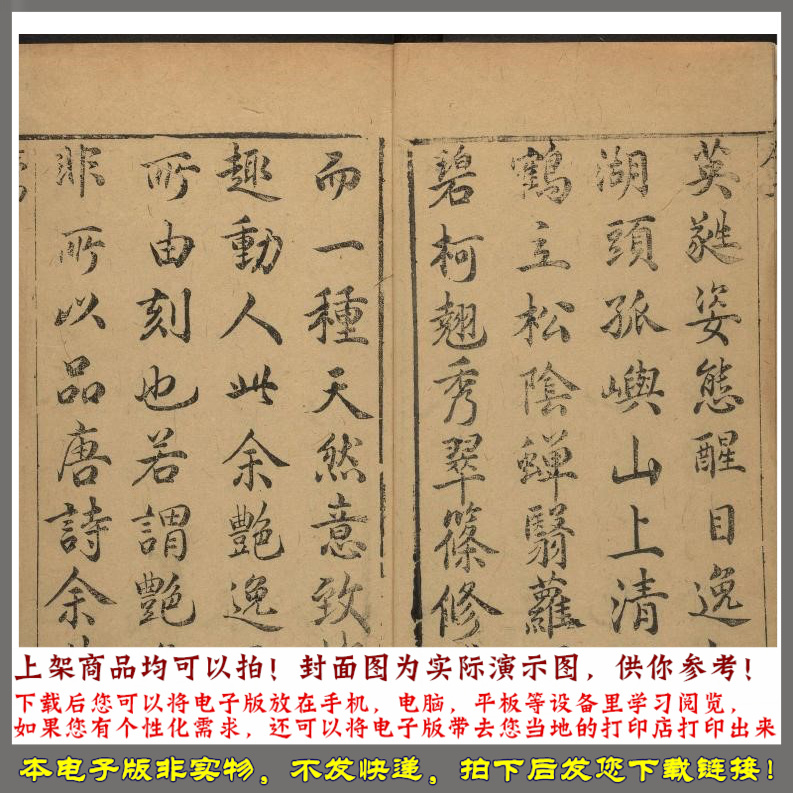 英蕤姿態醒目逸
湖頭孤嶼山上清
鶴主松陰蟬翳蘿
碧柯翹秀翠篠修
而一種天然意致
趣動人此余艷逸
所由刻也若謂艷
非所以品唐詩余
上架商品均可以拍！封面图为实际演示图，供你参考！
下载后您可以将电子版放在手机，电脑，平板等设备里学习阅览，
如果您有个性化需求，还可以将电子版带去您当地的打印店打印出来
本电子版非实物，不发快递，拍下后发您下载链接！